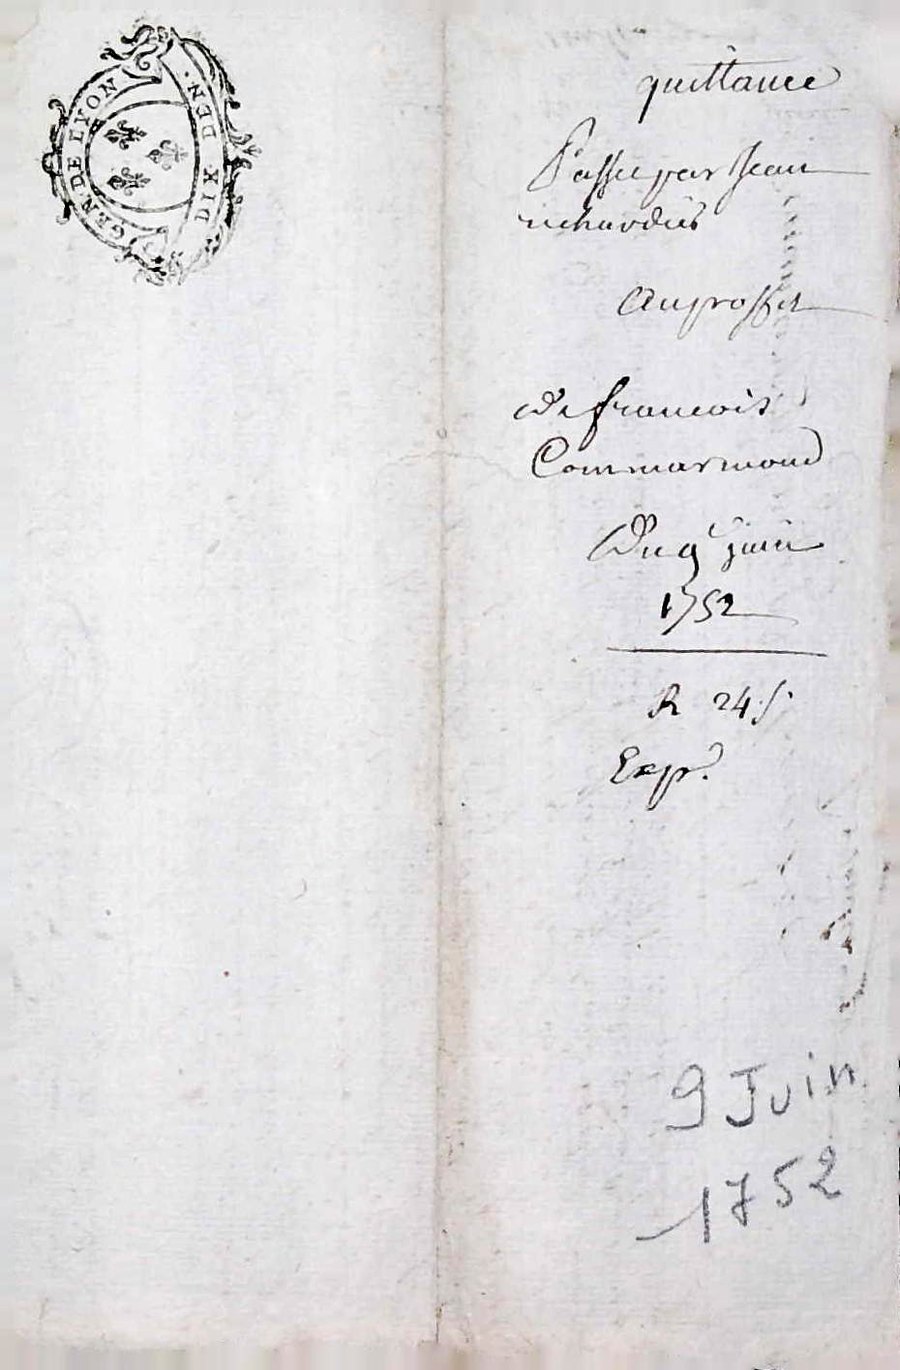 GEN. DE LYON
DIX. DEN.
quittance
Passée par Jean
richardier
Au proffit
De francois
Commarmond
Du 9e juin
1752
R 24 s.
Expe.
9 Juin
1752